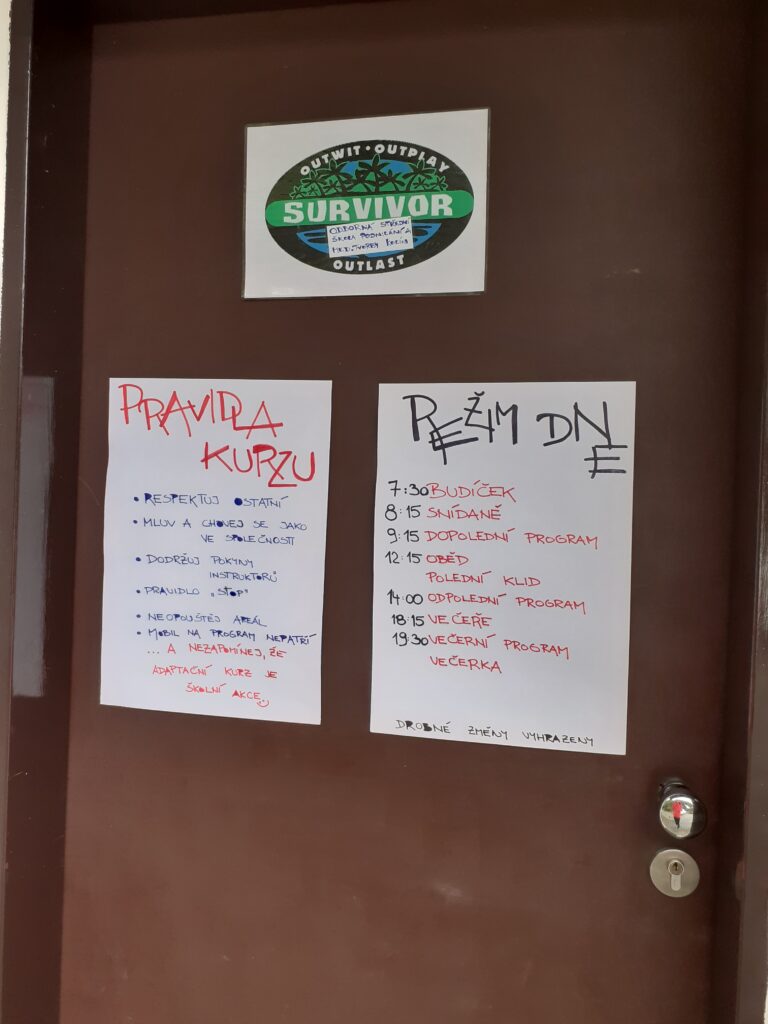 OUTWIT • OUTPLAY
SURVIVOR
ODBORNÁ STŘEDNÍ
ŠKOLA PODNIKÁNÍ A
MED. TVORBY KOLÍN
OUTLAST
PRAVIDLA
KURZU
• RESPEKTUJ OSTATNÍ
• MLUV A CHOVEJ SE JAKO
VE SPOLEČNOSTI
• DODRŽUJ POKYNY
INSTRUKTORŮ
• PRAVIDLO „STOP"
• NEOPOUŠTĚJ AREÁL
• MOBIL NA PROGRAM NEPATŘÍ
... A NEZAPOMÍNEJ, ŽE
ADAPTAČNÍ KURZ JE
ŠKOLNÍ AKCE
REŽIM DNE
7:30 BUDÍČEK
8:15 SNÍDANĚ
9:15 DOPOLEDNÍ PROGRAM
12:15 OBĚD
POLEDNÍ KLID
14:00 ODPOLEDNÍ PROGRAM
18:15 VEČEŘE
19:30 VEČERNÍ PROGRAM
VEČERKA
DROBNÉ ZMĚNY VYHRAZENY